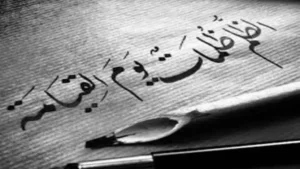 الظلم ظُلُمَاتٌ يَوْمَ الْقِيَامَةِ